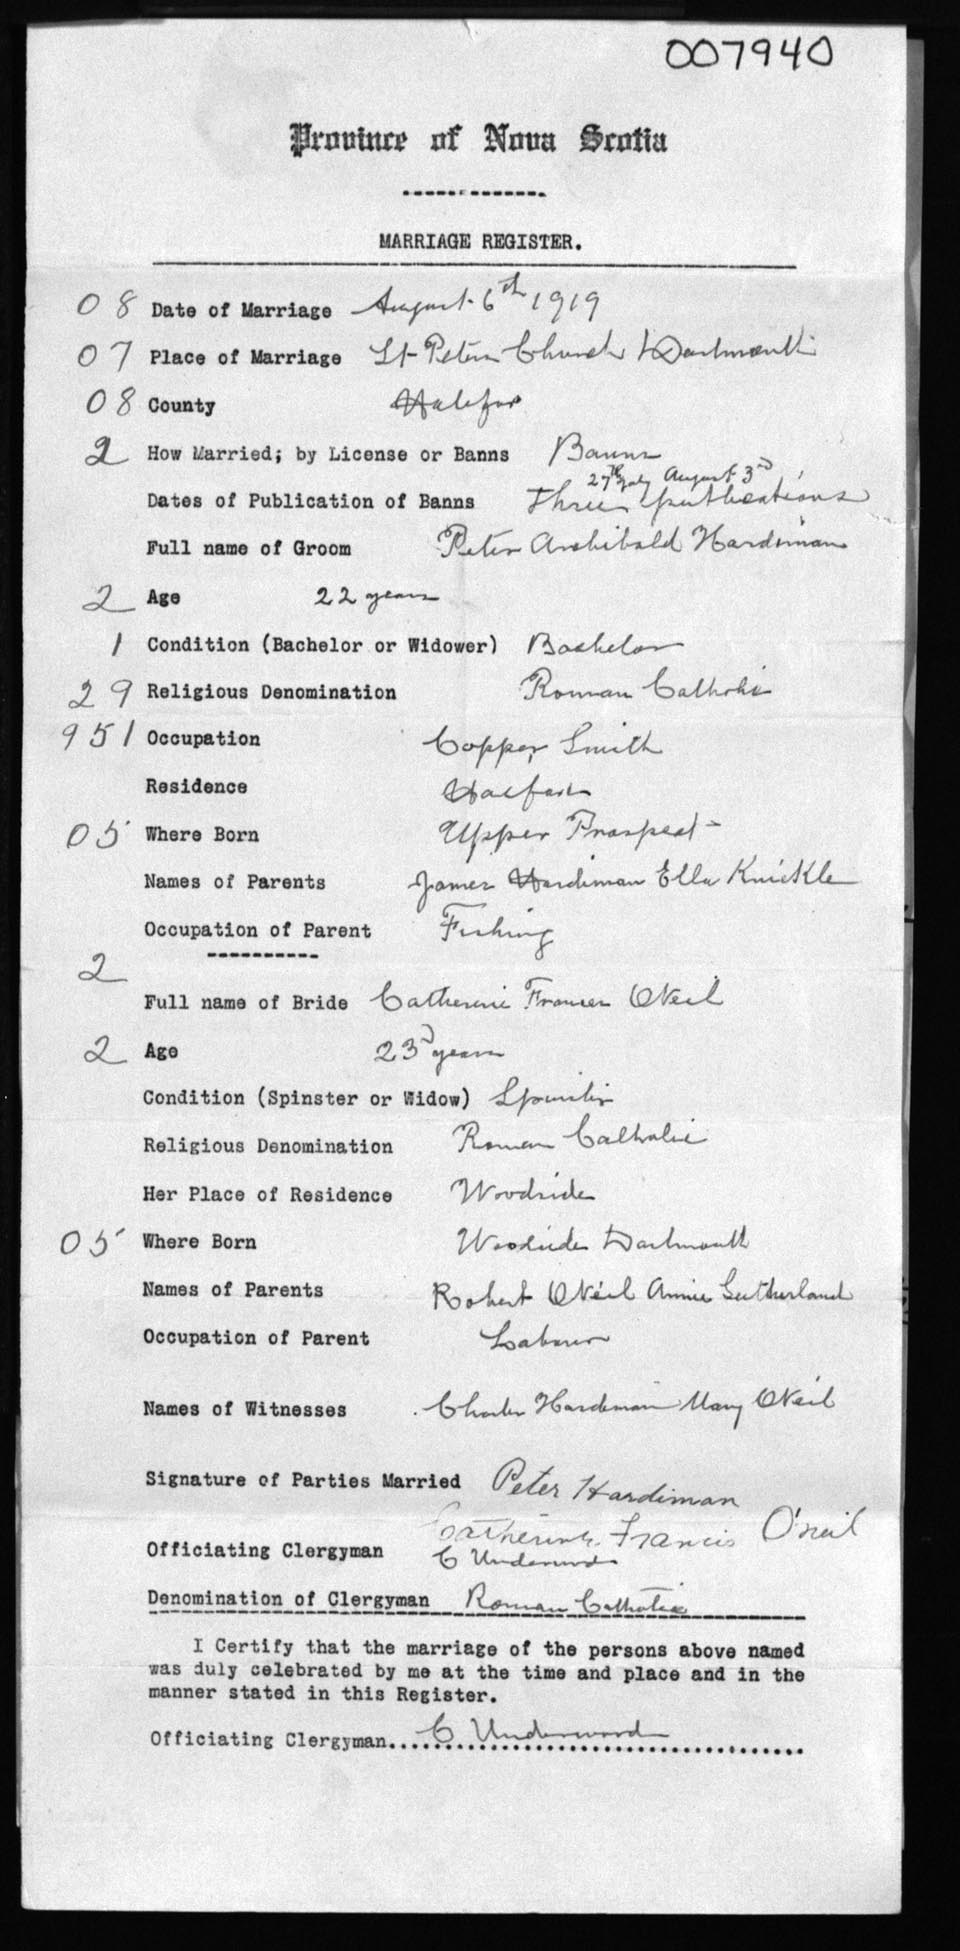 007940
Province of Nova Scotia
MARRIAGE REGISTER.
08 Date of Marriage August 6th 1919
07 Place of Marriage St Peters Church Dartmouth
08 County Halifax
2 How Married; by License or Banns Banns
27th July August 3rd
Dates of Publication of Banns Three publications
Full name of Groom Peter Archibald Hardiman
2 Age 22 years
1 Condition (Bachelor or Widower) Bachelor
29 Religious Denomination Roman Catholic
951 Occupation Copper Smith
Residence Halifax
05 Where Born Upper Prospect
Names of Parents James Hardiman Ella Knickle
Occupation of Parent Fishing
2
Full name of Bride Catherine Frances ONeil
2 Age 23 years
Condition (Spinster or Widow) Spinster
Religious Denomination Roman Catholic
Her Place of Residence Woodside
05 Where Born Woodside Dartmouth
Names of Parents Robert O'Neil Annie Sutherland
Occupation of Parent Laborer
Names of Witnesses Charles Hardiman Mary O'Neil
Signature of Parties Married Peter Hardiman
Catherine Francis O'neil
Officiating Clergyman C Underwood
Denomination of Clergyman Roman Catholic
I Certify that the marriage of the persons above named
was duly celebrated by me at the time and place and in the
manner stated in this Register.
Officiating Clergyman.... C Underwood